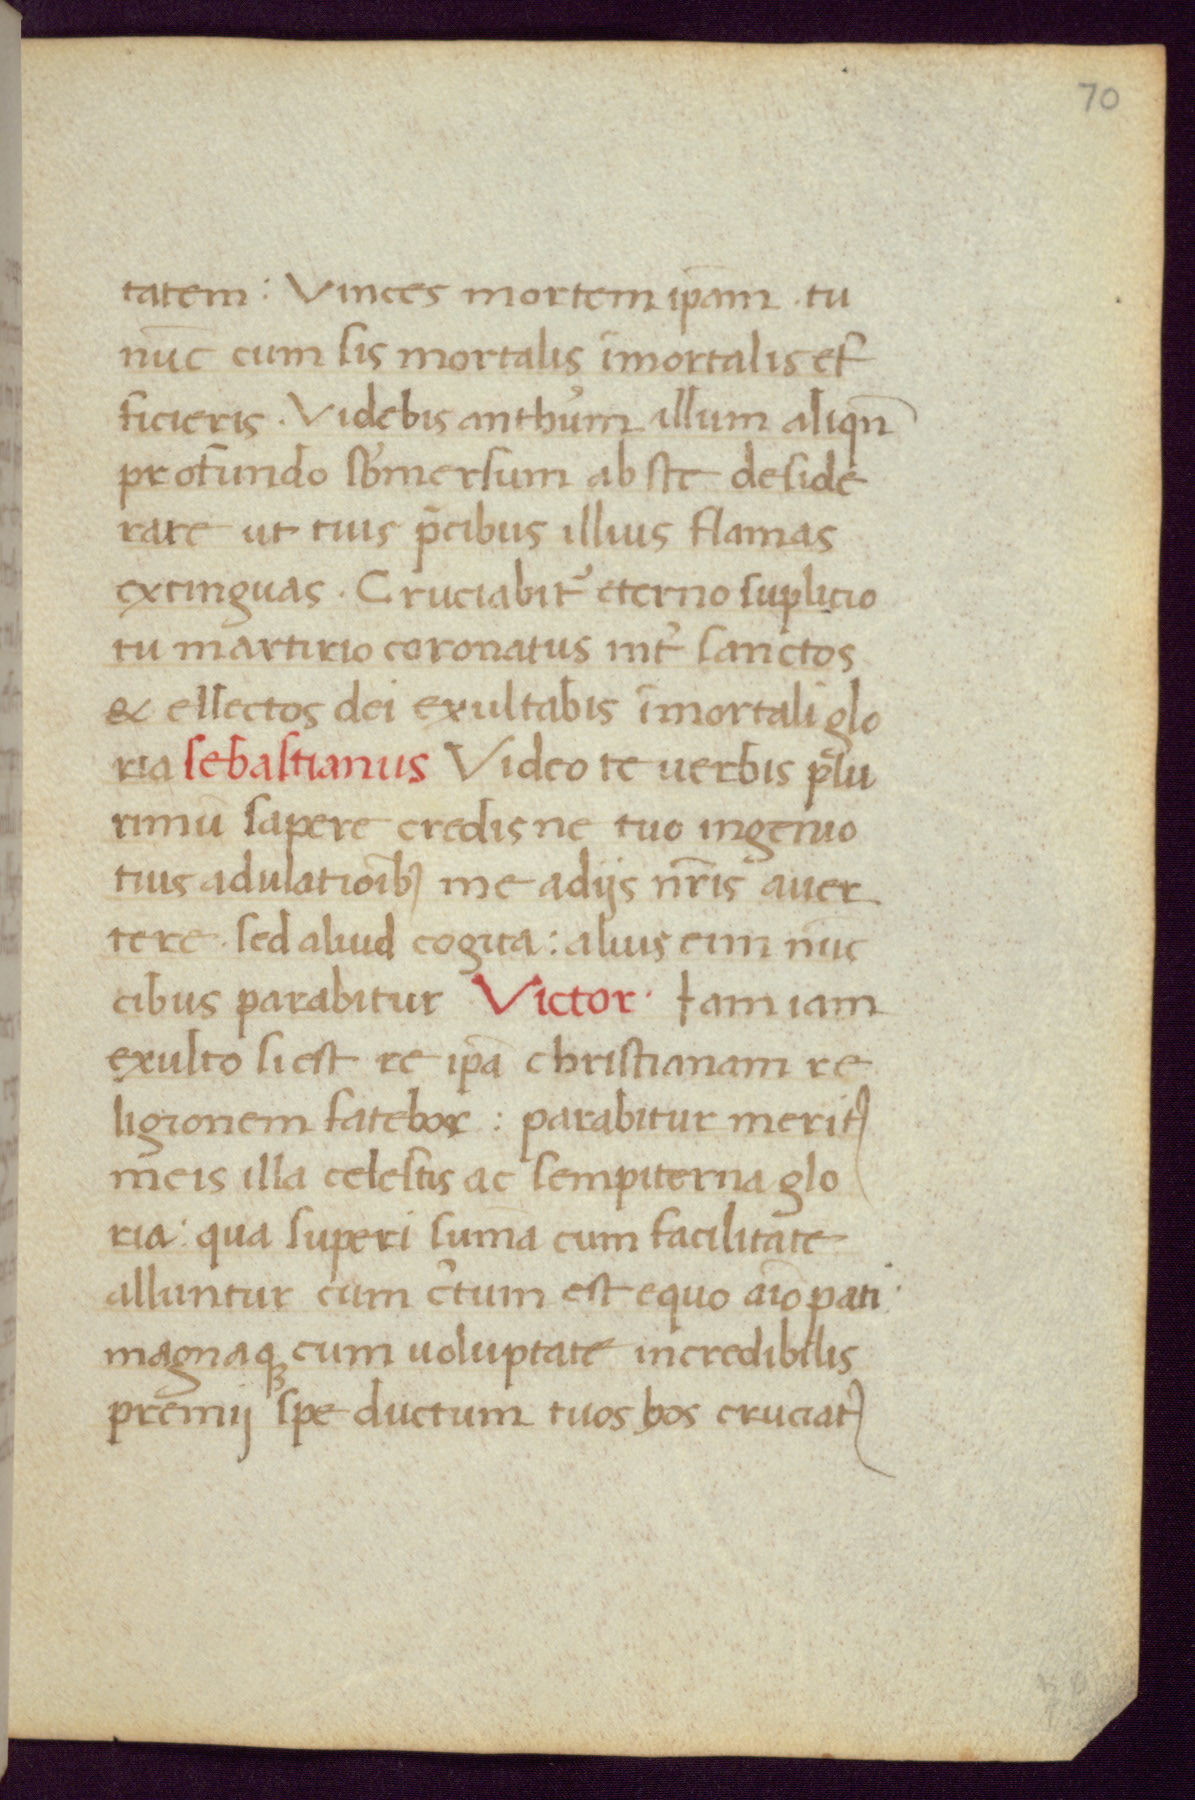 70
tatem : Vinces mortem ip̄am . tu
nūc cum sis mortalis īmortalis ef
ficieris . Videbis anthu᷒m illum aliqn̄
profundo sb᷒mersum abste deside
rare ut tuis p̄cibus illius flamas
extinguas . Cruciabit᷒ eterno suplicio
tu martirio coronatus int᷒ sanctos
& ellectos dei exultabis īmortali glo
ria sebastianus Video te uerbis plu
rimū sapere credis ne tuo ingenio
tuis adulatioīb) me adijs nr̄is auer
tere . sed aliud cogita : alius eim nūc
cibus parabitur Victor . Iam iam
exulto si est re ip̄a christianam re
ligionem fatebor : parabitur merit)
meis illa celestis ac sempiterna glo
ria : qua superi sum̄a cum facilitate
alluntur cum c᷒tum est equo aīo pati .
magnaqꝫ cum uoluptate incredibilis
premij spe ductum tuos hos cruciat)